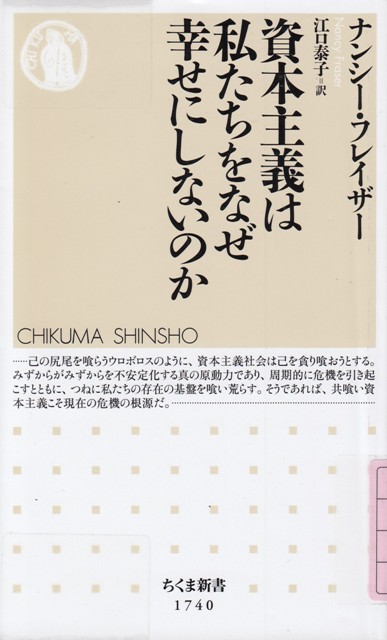 ナンシー・フレイザー
Nancy Fraser
江口泰子=訳
資本主義は
私たちをなぜ
幸せにしないのか
CHIKUMA SHINSHO
……己の尻尾を喰らうウロボロスのように、資本主義社会は己を貪り喰おうとする。
みずからがみずからを不安定化する真の原動力であり、周期的に危機を引き起
こすとともに、つねに私たちの存在の基盤を喰い荒らす。そうであれば、共喰い資
本主義こそ現在の危機の根源だ。……
ちくま新書
1740